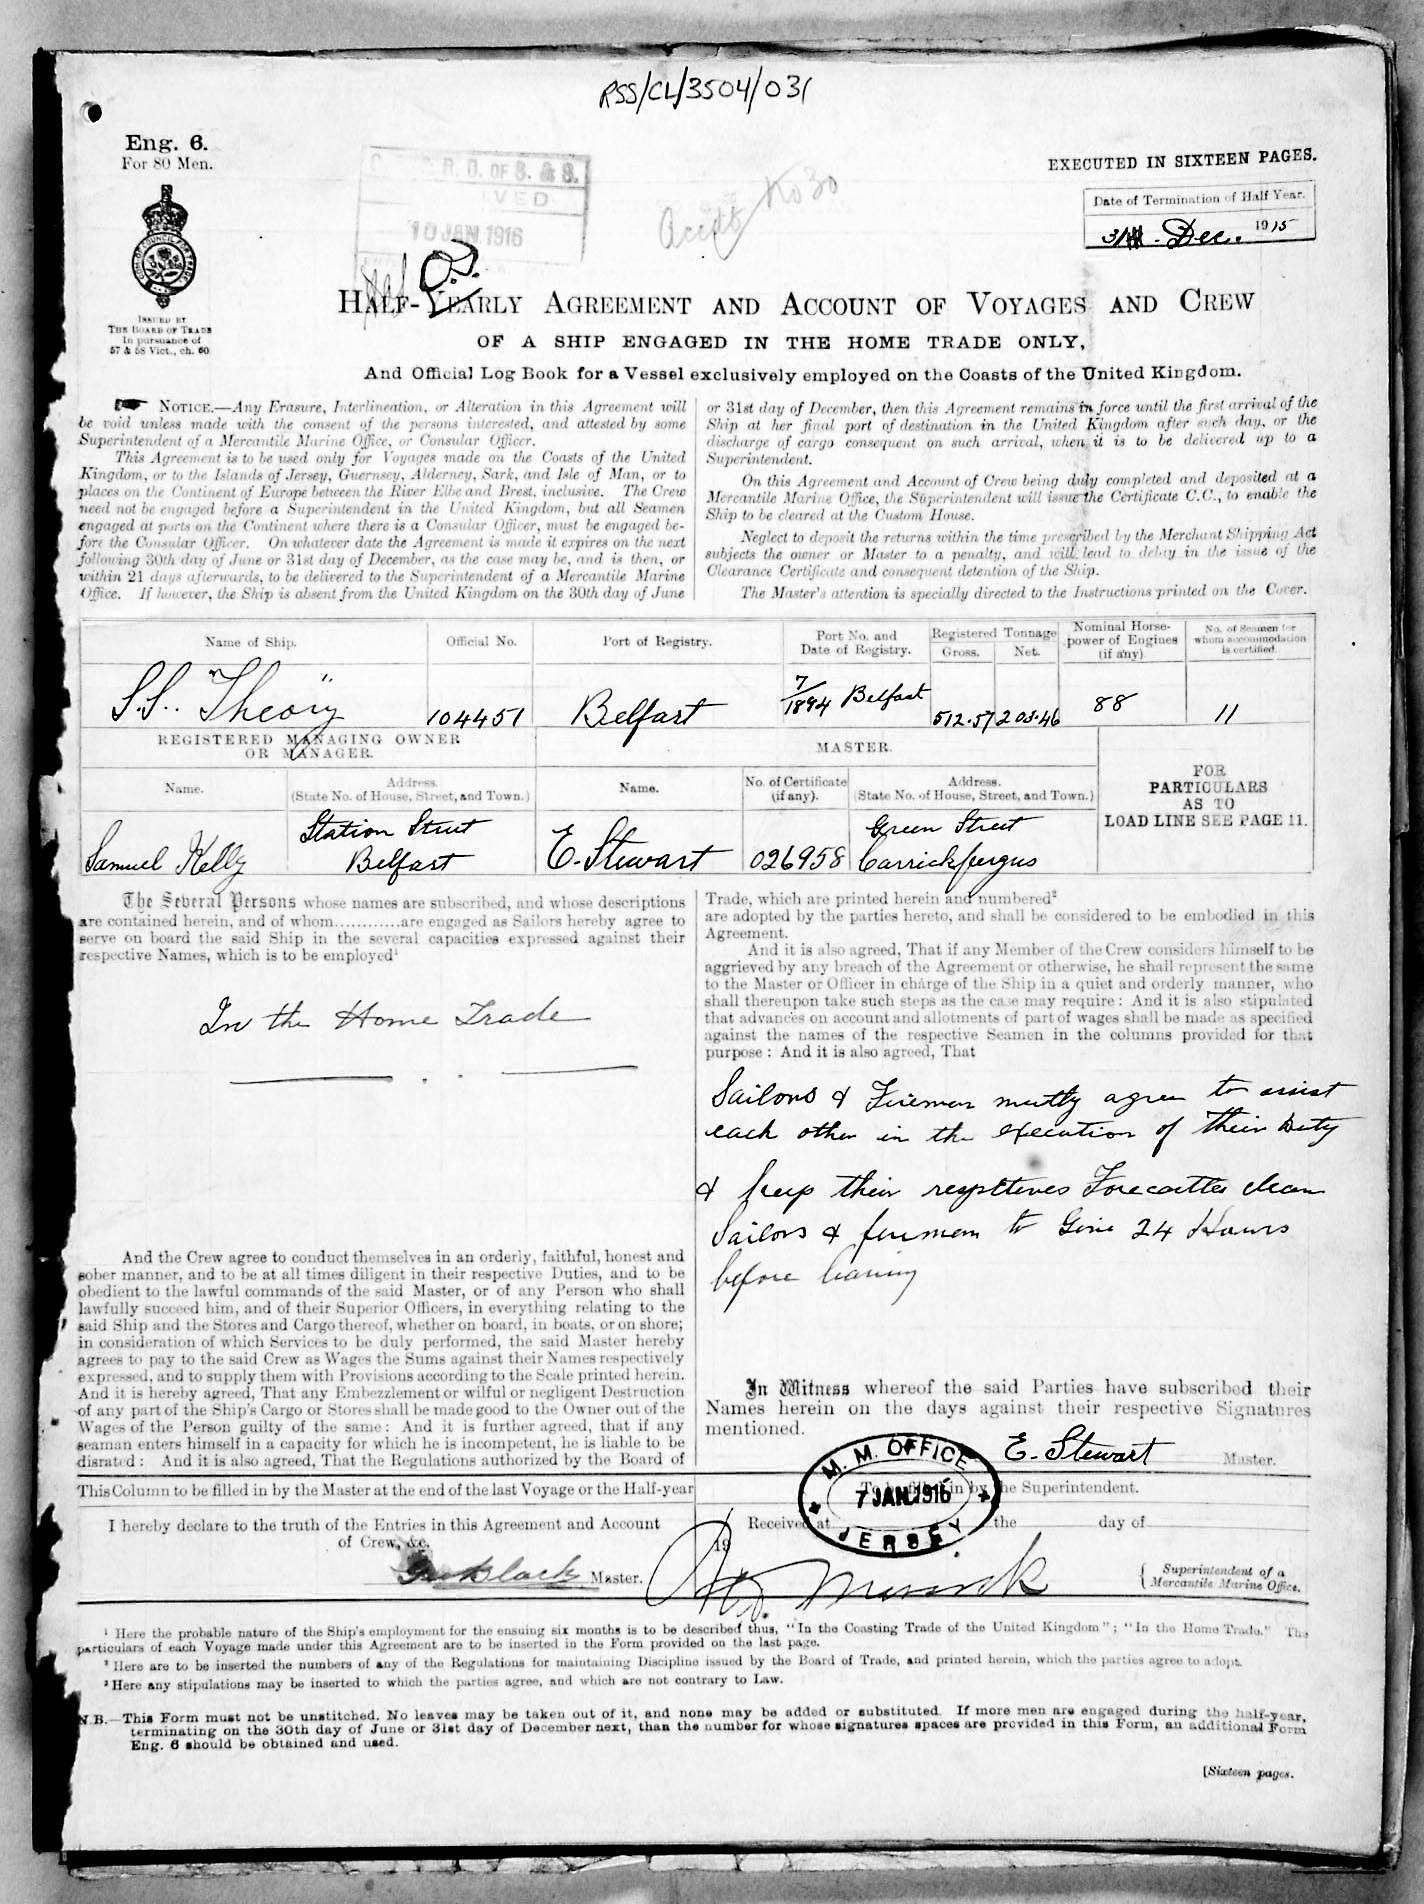 RSS/CL/3504/031
Eng. 6.
For 80 Men.
EXECUTED IN SIXTEEN PAGES.
R. O. OF S. & S.
VED
10 JAN. 1916
No 30
Date of Termination of Half Year.
31st Dec. 1915
ISSUED BY
THE BOARD OF TRADE
In pursuance of
57 & 58 Vict., ch. 60
HALF-YEARLY AGREEMENT AND ACCOUNT OF VOYAGES AND CREW
OF A SHIP ENGAGED IN THE HOME TRADE ONLY,
And Official Log Book for a Vessel exclusively employed on the Coasts of the United Kingdom.
NOTICE.—Any Erasure, Interlineation, or Alteration in this Agreement will
be void unless made with the consent of the persons interested, and attested by some
Superintendent of a Mercantile Marine Office, or Consular Officer.
This Agreement is to be used only for Voyages made on the Coasts of the United
Kingdom, or to the Islands of Jersey, Guernsey, Alderney, Sark, and Isle of Man, or to
places on the Continent of Europe between the River Elbe and Brest, inclusive. The Crew
need not be engaged before a Superintendent in the United Kingdom, but all Seamen
engaged at ports on the Continent where there is a Consular Officer, must be engaged be-
fore the Consular Officer. On whatever date the Agreement is made it expires on the next
following 30th day of June or 31st day of December, as the case may be, and is then, or
within 21 days afterwards, to be delivered to the Superintendent of a Mercantile Marine
Office. If however, the Ship is absent from the United Kingdom on the 30th day of June
or 31st day of December, then this Agreement remains in force until the first arrival of the
Ship at her final port of destination in the United Kingdom after such day, or the
discharge of cargo consequent on such arrival, when it is to be delivered up to a
Superintendent.
On this Agreement and Account of Crew being duly completed and deposited at a
Mercantile Marine Office, the Superintendent will issue the Certificate C.C., to enable the
Ship to be cleared at the Custom House.
Neglect to deposit the returns within the time prescribed by the Merchant Shipping Act
subjects the owner or Master to a penalty, and will lead to delay in the issue of the
Clearance Certificate and consequent detention of the Ship.
The Master's attention is specially directed to the Instructions printed on the Cover.
Name of Ship.
Official No.
Port of Registry.
Port No. and
Date of Registry.
Registered Tonnage
Gross. Net.
Nominal Horse-
power of Engines
(if any)
No. of Seamen for
whom accommodation
is certified.
S.S. "Theory"
104451
Belfast
7/1894 Belfast
512.57
203.46
88
11
REGISTERED MANAGING OWNER
OR MANAGER.
MASTER.
FOR
PARTICULARS
AS TO
LOAD LINE SEE PAGE 11.
Name.
Address.
(State No. of House, Street, and Town.)
Name.
No. of Certificate
(if any).
Address.
(State No. of House, Street, and Town.)
Samuel Kelly
Station Street
Belfast
E. Stewart
026958
Green Street
Carrickfergus
The Several Persons whose names are subscribed, and whose descriptions
are contained herein, and of whom............are engaged as Sailors hereby agree to
serve on board the said Ship in the several capacities expressed against their
respective Names, which is to be employed¹
In the Home Trade
And the Crew agree to conduct themselves in an orderly, faithful, honest and
sober manner, and to be at all times diligent in their respective Duties, and to be
obedient to the lawful commands of the said Master, or of any Person who shall
lawfully succeed him, and of their Superior Officers, in everything relating to the
said Ship and the Stores and Cargo thereof, whether on board, in boats, or on shore;
in consideration of which Services to be duly performed, the said Master hereby
agrees to pay to the said Crew as Wages the Sums against their Names respectively
expressed, and to supply them with Provisions according to the Scale printed herein.
And it is hereby agreed, That any Embezzlement or wilful or negligent Destruction
of any part of the Ship's Cargo or Stores shall be made good to the Owner out of the
Wages of the Person guilty of the same: And it is further agreed, that if any
seaman enters himself in a capacity for which he is incompetent, he is liable to be
disrated: And it is also agreed, That the Regulations authorized by the Board of
Trade, which are printed herein and numbered²
are adopted by the parties hereto, and shall be considered to be embodied in this
Agreement.
And it is also agreed, That if any Member of the Crew considers himself to be
aggrieved by any breach of the Agreement or otherwise, he shall represent the same
to the Master or Officer in charge of the Ship in a quiet and orderly manner, who
shall thereupon take such steps as the case may require: And it is also stipulated
that advances on account and allotments of part of wages shall be made as specified
against the names of the respective Seamen in the columns provided for that
purpose: And it is also agreed, That
Sailors & Firemen mutly agree to assist
each other in the execution of their Duty
& keep their respttives Forecastles clean
Sailors & firemen to Give 24 Hours
before leaving
In Witness whereof the said Parties have subscribed their
Names herein on the days against their respective Signatures
mentioned.
E. Stewart Master.
This Column to be filled in by the Master at the end of the last Voyage or the Half-year
I hereby declare to the truth of the Entries in this Agreement and Account
of Crew, &c.
Black Master.
To be filled in by the Superintendent.
M. M. OFFICE
7 JAN. 1916
JERSEY
Received at the day of
19
Superintendent of a
Mercantile Marine Office.
¹ Here the probable nature of the Ship's employment for the ensuing six months is to be described thus, "In the Coasting Trade of the United Kingdom"; "In the Home Trade." The
particulars of each Voyage made under this Agreement are to be inserted in the Form provided on the last page.
² Here are to be inserted the numbers of any of the Regulations for maintaining Discipline issued by the Board of Trade, and printed herein, which the parties agree to adopt.
³ Here any stipulations may be inserted to which the parties agree, and which are not contrary to Law.
N.B.—This Form must not be unstitched. No leaves may be taken out of it, and none may be added or substituted. If more men are engaged during the half-year,
terminating on the 30th day of June or 31st day of December next, than the number for whose signatures spaces are provided in this Form, an additional Form
Eng. 6 should be obtained and used.
[Sixteen pages.